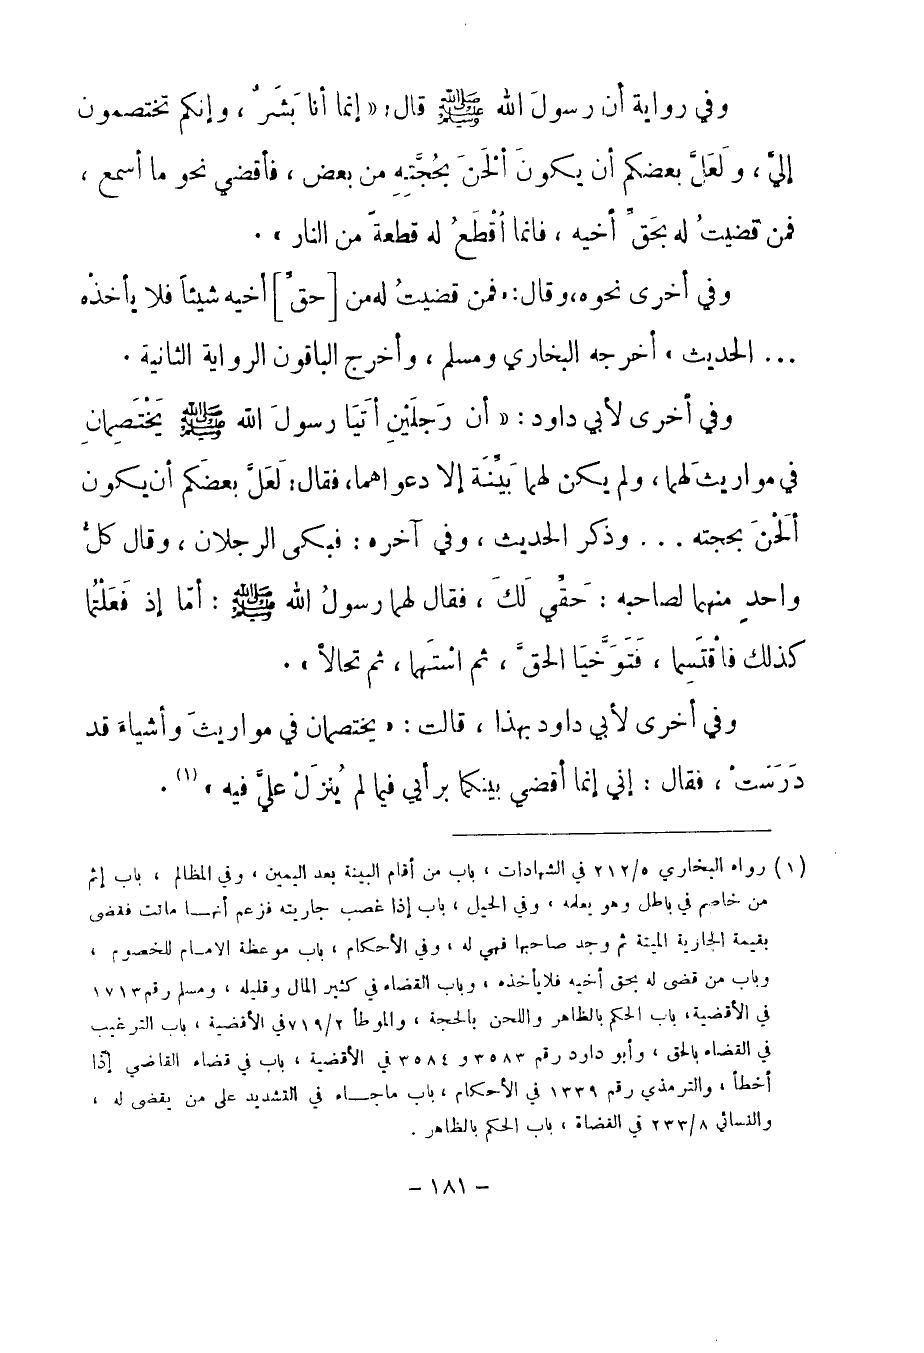 وفي رواية أن رسولَ الله ﷺ قال: « إنما أنا بَشَرٌ ، وإنكم تختصمون
إليَّ ، ولَعَلَّ بعضكم أن يكونَ ألْحَنَ بحُجَّتِهِ من بعض ، فأقضي نحو ما أسمع ،
فمن قضيتُ له بحَقِّ أخيه ، فانما أقْطَعُ له قطعةً من النار » .
وفي أخرى نحوه، وقال: « فمن قضيتُ له من [ حقِّ ] أخيه شيئاً فلا يأخذْه
... الحديث » أخرجه البخاري ومسلم ، وأخرج الباقون الرواية الثانية .
وفي أخرى لأبي داود : « أن رَجلَيْنِ أتَيَا رسولَ الله ﷺ يَخْتَصِمانِ
في مواريثَ لهما ، ولم يكن لهما بَيِّنَة إلا دعواهما، فقال: لَعَلَّ بعضَكم أن يكون
ألْحَنَ بحجته ... وذكر الحديث ، وفي آخره : فبكى الرجلان ، وقال كلُّ
واحدٍ منهما لصاحبه : حَقِّي لَكَ ، فقال لهما رسولُ الله ﷺ : أمّا إذ فَعَلْتُما
كذلك فاقْتَسِما ، فَتَوَخَّيَا الحقَّ ، ثم استَهِما ، ثم تحالاّ » .
وفي أخرى لأبي داود بهذا ، قالت : « يختصمان في مواريثَ وأشياءَ قد
دَرَسَتْ ، فقال : إني إنما أقضي بينكما برأيي فيما لم يُنزَلْ عليَّ فيه » (١) .
(١) رواه البخاري ٢١٢/٥ في الشهادات ، باب من أقام البينة بعد اليمين ، وفي المظالم ، باب إثم
من خاصم في باطل وهو يعلمه ، وفي الحيل ، باب إذا غصب جاريته فزعم أنهـا ماتت فقضى
بقيمة الجارية الميتة ثم وجد صاحبها فهي له ، وفي الأحكام ، باب موعظة الامام للخصوم ،
وباب من قضى له بحق أخيه فلا يأخذه ، وباب القضاء في كثير المال وقليله ، ومسلم رقم ١٧١٣
في الأقضية، باب الحكم بالظاهر واللحن بالحجة ، والموطأ ٧١٩/٢ في الأقضية ، باب الترغيب
في القضاء بالحق ، وأبو داود رقم ٣٥٨٣ و ٣٥٨٤ في الأقضية ، باب في قضاء القاضي إذا
أخطأ ، والترمذي رقم ١٣٣٩ في الأحكام ، باب ماجـاء في التشديد على من يقضى له ،
والنسائي ٢٣٣/٨ في القضاة ، باب الحكم بالظاهر .
- ١٨١ -